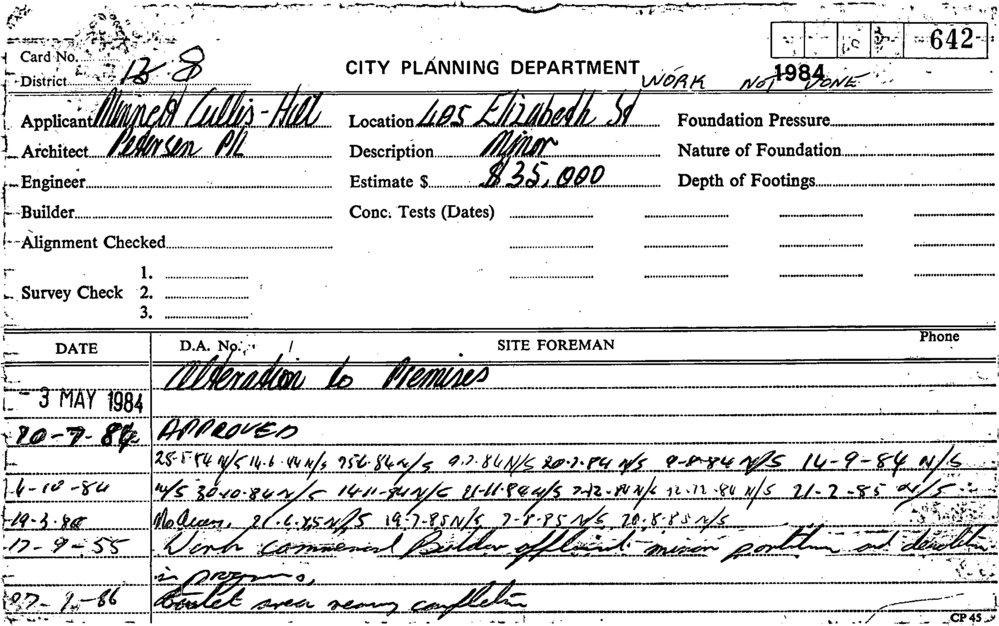 642
Card No.
District 12 8
CITY PLANNING DEPARTMENT 1984
WORK NOT DONE
Applicant Minnett Cullis-Hill Location 405 Elizabeth St Foundation Pressure
Architect Petersen P/L Description Minor Nature of Foundation
Engineer Estimate $ $35,000 Depth of Footings
Builder Conc. Tests (Dates)
Alignment Checked
1.
Survey Check 2.
3.
DATE D.A. No. / SITE FOREMAN Phone
Alteration to Premises
3 MAY 1984
APPROVED
28-5-84 N/S 14-6-84 N/S N/S 9-7-84 N/S 20-7-84 N/S 9-8-84 N/S 14-9-84 N/S
4-10-84 N/S 30-10-84 N/S 14-11-84 N/S 21-11-84 N/S 7-12-84 N/S 12-12-84 N/S 21-2-85 N/S
No 21-6-85 N/S 19-7-85 N/S 7-8-85 N/S 20-8-85 N/S
Work commenced Builder minor partition and
in progress,
Toilet area nearing completion
CP 45